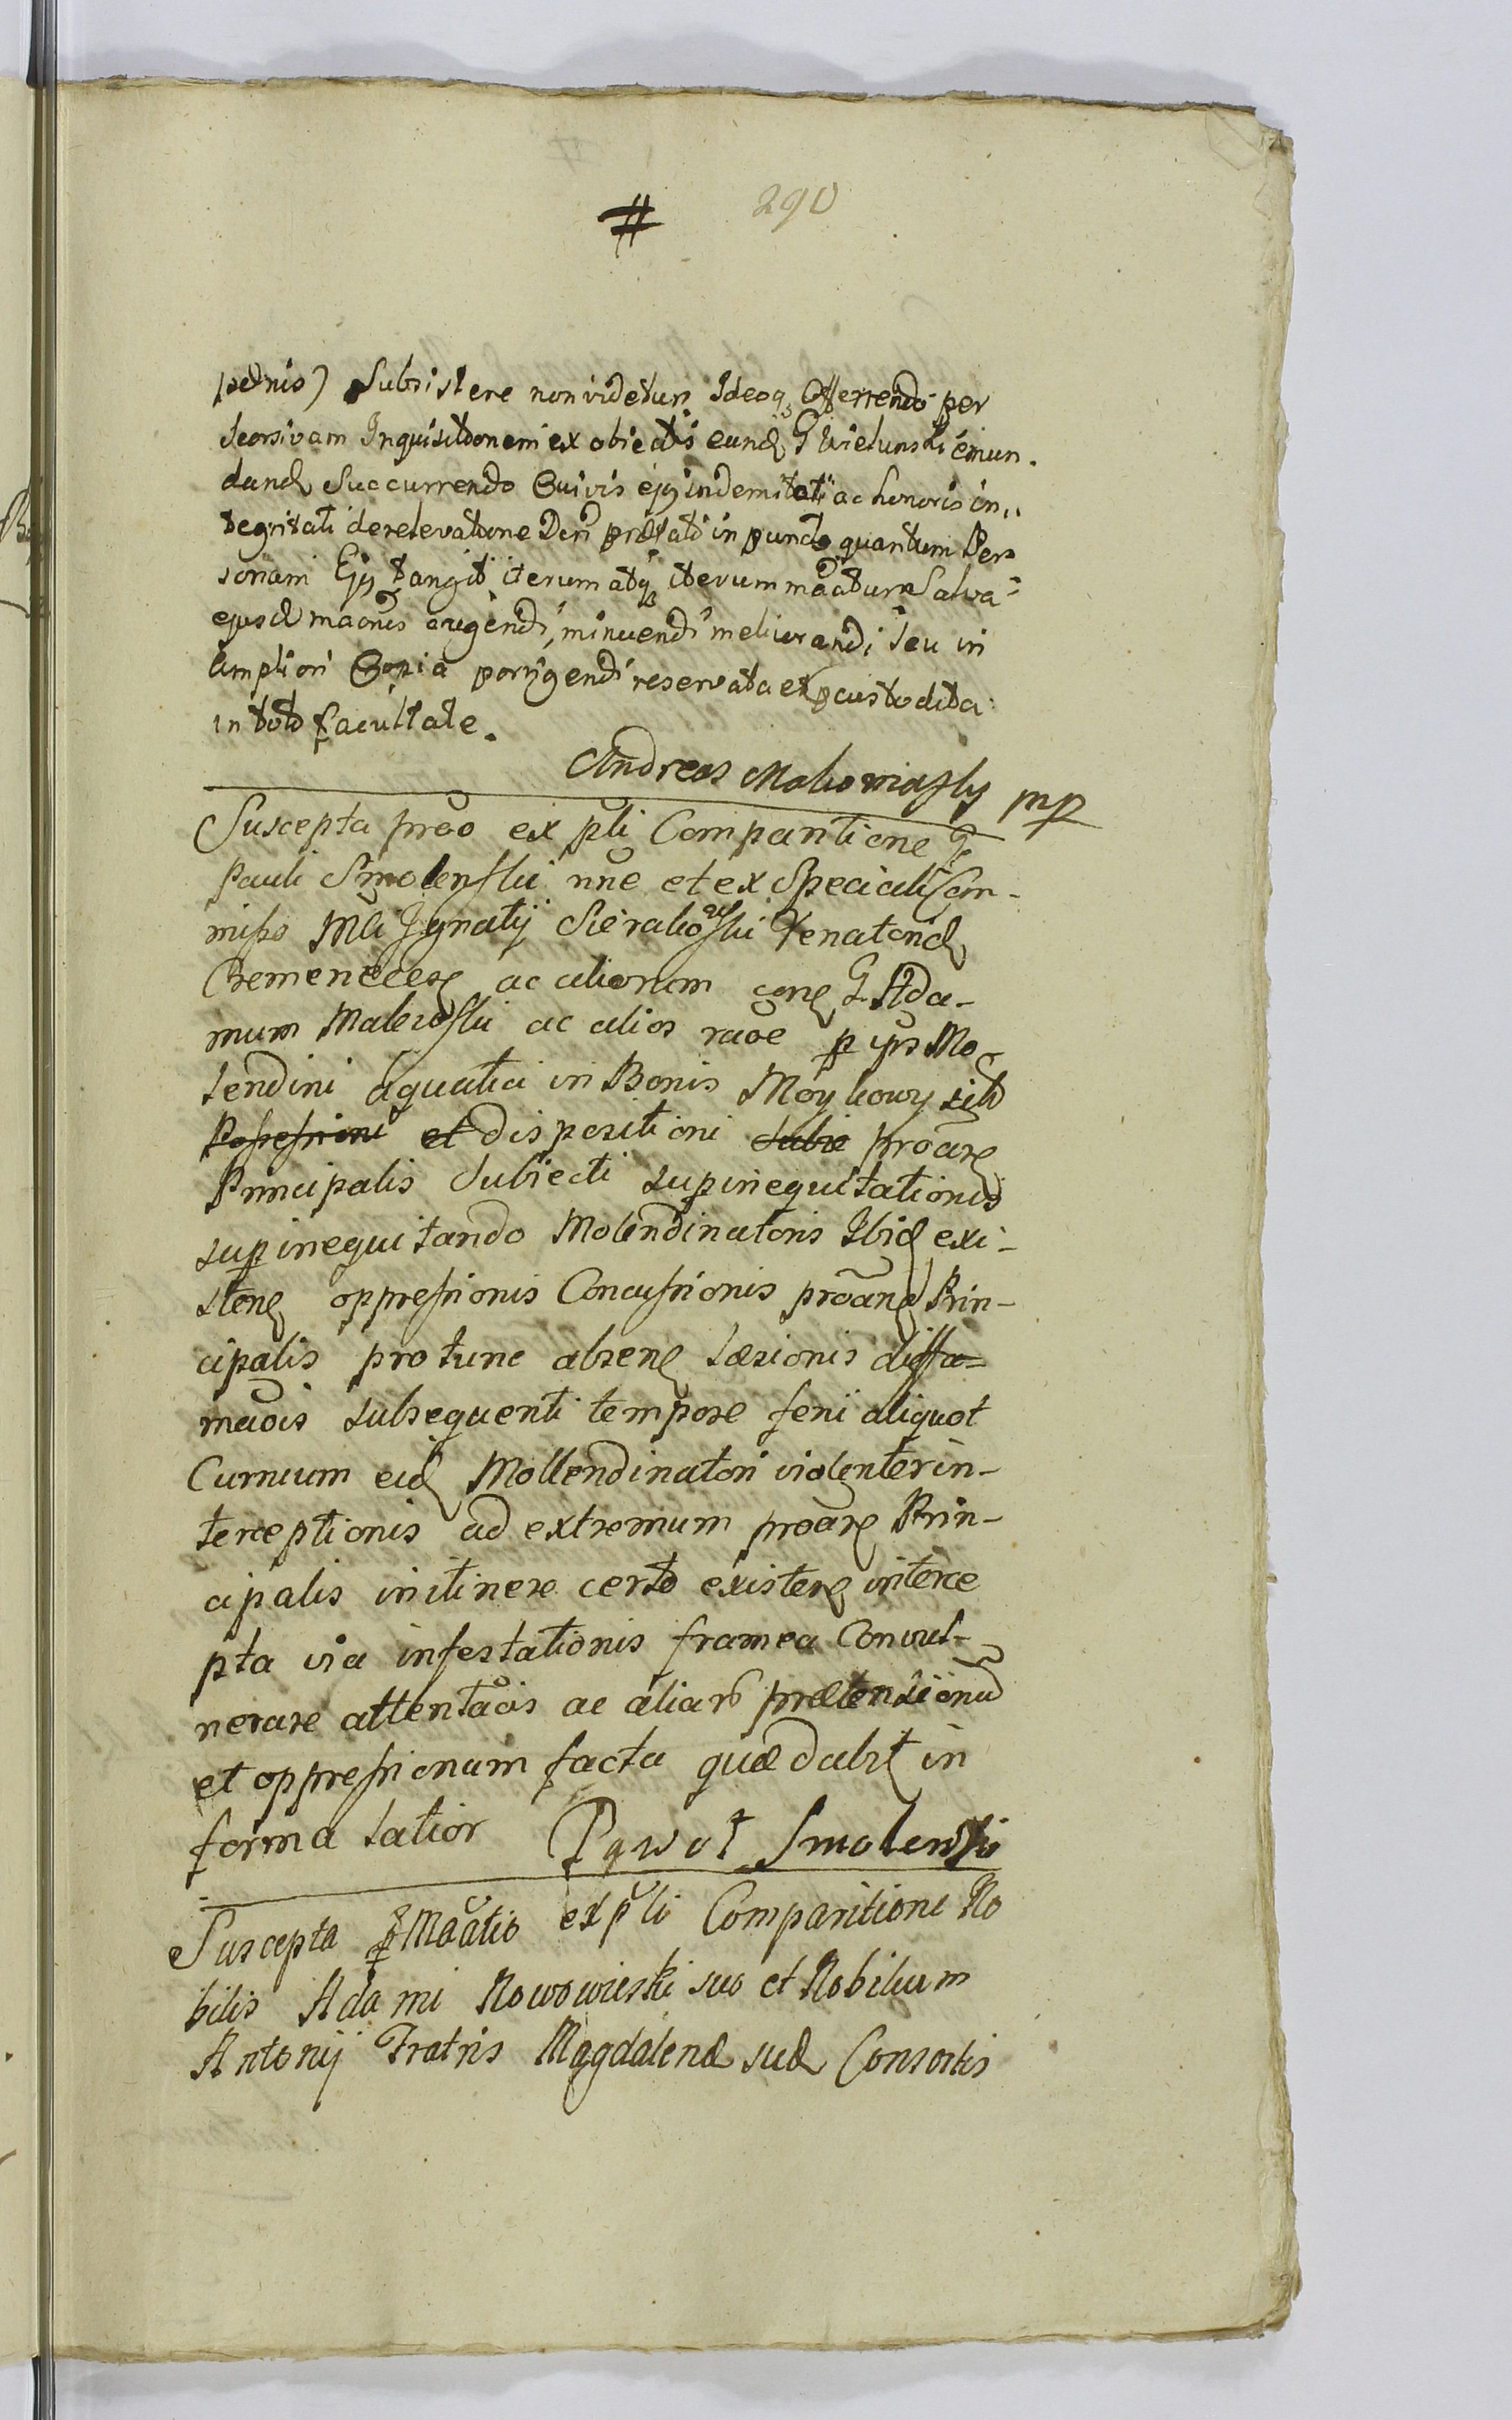 # 290
petnis) Subsistere non videtur, Ideoq, Offerrendo per
deorsivam Inquisitionem ex obiectis eund G Wielunski emun-
dand Succurrendo Suivis ejq indemitati ac honoris in,,
tegritati de relevatione Dcri prætati in puncto quantum Per
sonam Ejq tangit iterum atq iterum maatur Salva
ejusd maonis augendi, minuendi meliorandi seu in
ampliori Copia porrigendi reservata et pcustodita
in toto facultate.
Andreas mp
Suscepta prao ex pli Comparitione G
Pauli Smolenski nne et ex Speciali Com-
misso Mci Ignatij Sierakowski Venatorid
Cremenecens ac aliorum cone G Ada-
mum Malczoski ac alios raoe p ips Mo
lendini aquatici in Bonis sitd
Possessioni et dispositioni subie proare
Principalis Subiecti supinequitationis
supinequitando Molendinatoris Ibid exi-
sten oppressionis Concussionis proand Prin-
cipalis protunc absen læsionis diffa-
maois subsequenti tempore feni aliquot
Curruum eid Mollendinatori violenter in-
terceptionis ad extremum proare Prin-
cipalis in itinere certo existen interce
pta via infestationis framea Convul-
nerare attentaois ac aliar prætensionu
et oppressionum facta quæ dabit in
forma latior Pawoł Smolenski
Suscepta p Maatio ex pli Comparitione No
bilis Adami Nowowieski suo et Nobilium
Antonij Fratris Magdalenæ suæ Consortis